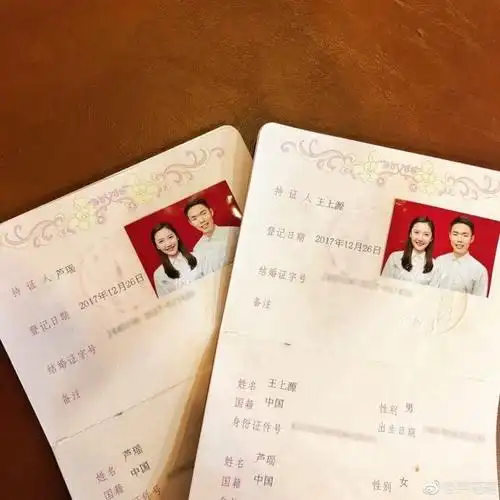 持证人 芦瑶
登记日期 2017年12月26日
结婚证字号
备注
姓名 芦瑶
国籍 中国
持证人 王上源
登记日期 2017年12月26日
结婚证字号
备注
姓名 王上源
国籍 中国 性别 男
身份证件号 出生日期
姓名 芦瑶
国籍 中国 性别 女